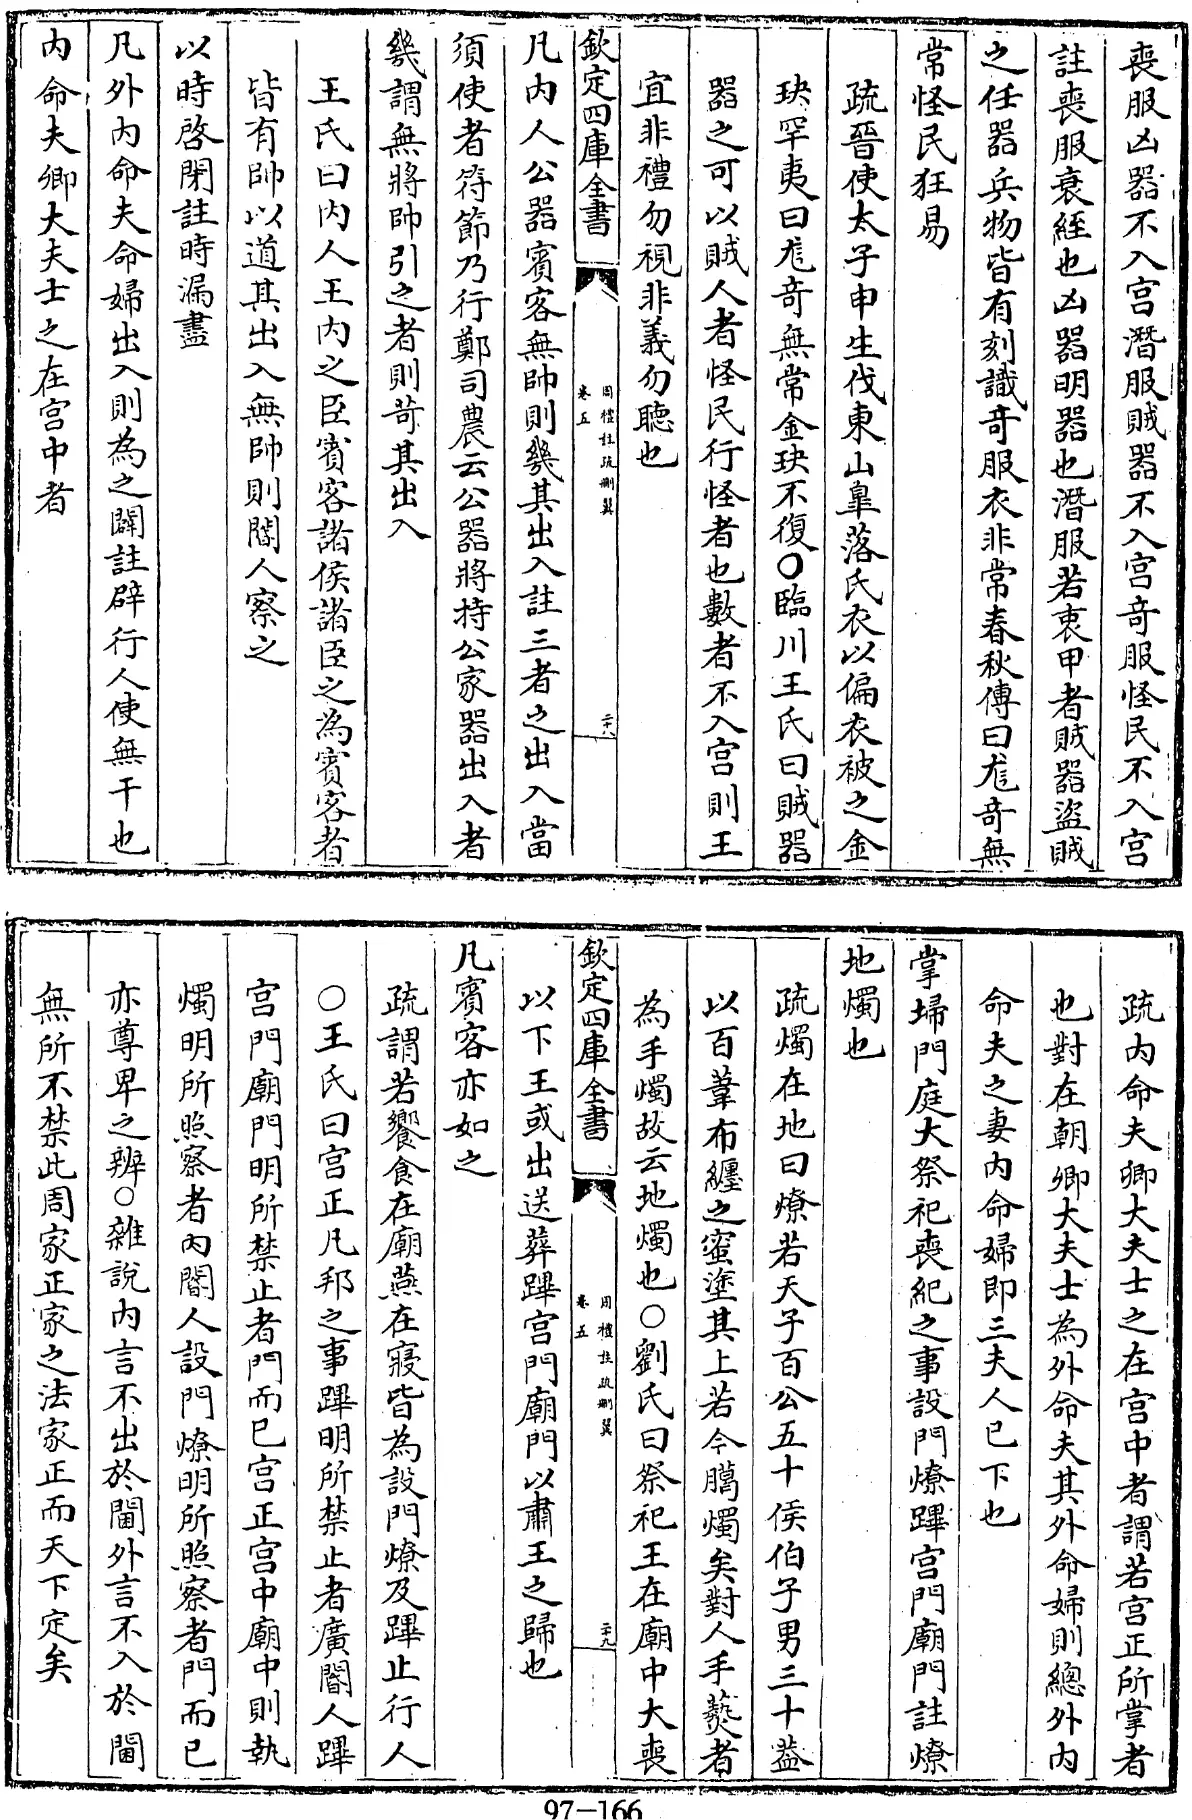 喪服凶器不入宫潛服賊器不入宫奇服怪民不入宫
註喪服衰絰也凶器明器也潛服若衷甲者賊器盜賊
之任器兵物皆有刻識竒服衣非常春秋傳曰尨奇無
常怪民狂易
疏晉使太子申生伐東山臯落氏衣以偏衣被之金
玦罕夷曰尨竒無常金玦不復〇臨川王氏曰賊器
器之可以賊人者怪民行怪者也數者不入宫則王
宜非禮勿視非義勿聽也
欽定四庫全書
周禮註疏刪翼
卷五
二十八
凡内人公器賓客無帥則幾其出入註三者之出入當
須使者符節乃行鄭司農云公器將持公家器出入者
幾謂無將帥引之者則苛其出入
王氏曰内人王内之臣賓客諸侯諸臣之為賓客者
皆有帥以道其出入無帥則閽人察之
以時啓閉註時漏盡
凡外内命夫命婦出入則為之闢註辟行人使無干也
内命夫卿大夫士之在宫中者
疏内命夫卿大夫士之在宫中者謂若宫正所掌者
也對在朝卿大夫士為外命夫其外命婦則總外内
命夫之妻内命婦即三夫人已下也
掌埽門庭大祭祀喪紀之事設門燎蹕宫門廟門註燎
地燭也
疏燭在地曰燎若天子百公五十侯伯子男三十葢
以百葦布纏之蜜塗其上若今臈燭矣對人手爇者
為手燭故云地燭也〇劉氏曰祭祀王在廟中大喪
欽定四庫全書
周禮註疏刪翼
卷五
二十九
以下王或出送葬蹕宫門廟門以肅王之歸也
凡賓客亦如之
疏謂若饗食在廟燕在寢皆為設門燎及蹕止行人
〇王氏曰宫正凡邦之事蹕明所禁止者廣閽人蹕
宫門廟門明所禁止者門而已宫正宫中廟中則執
燭明所照察者内閽人設門燎明所照察者門而已
亦尊卑之辨〇雜說内言不出於閫外言不入於閫
無所不禁此周家正家之法家正而天下定矣
97-166